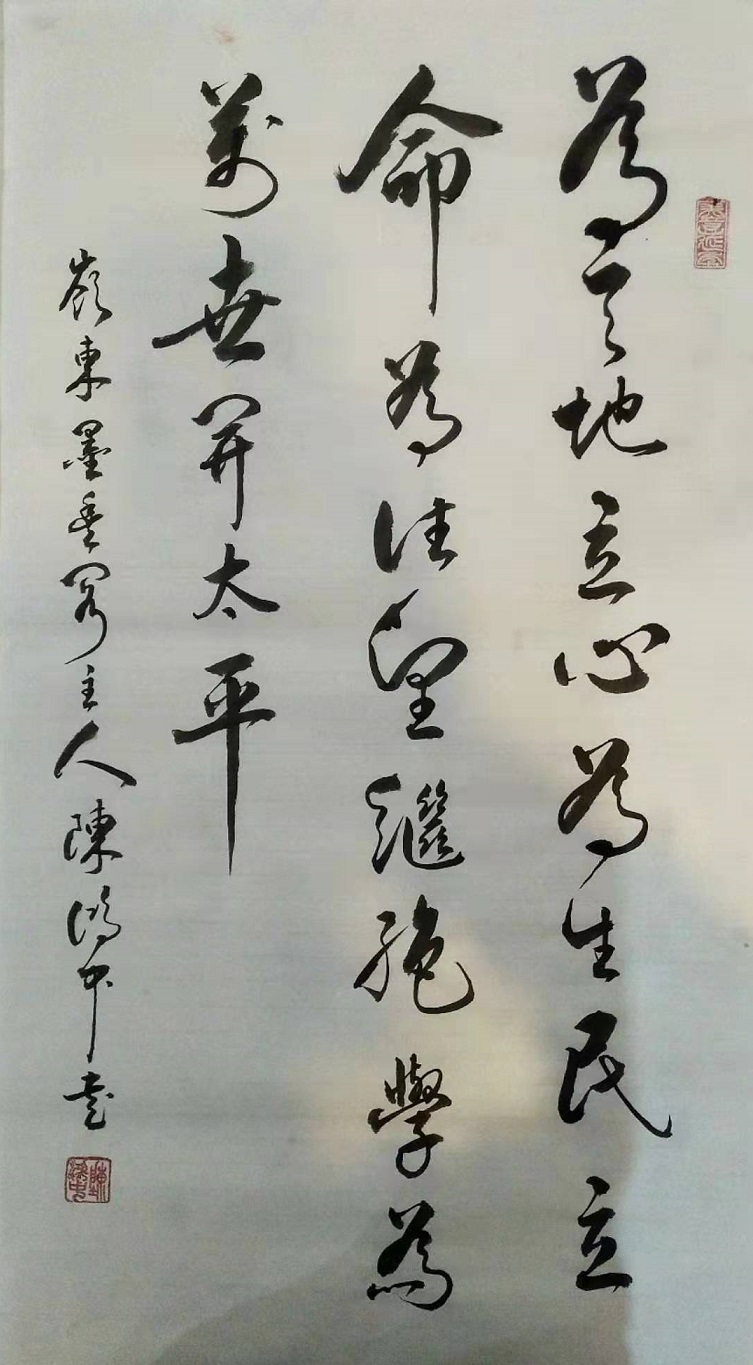 為天地立心為生民立
命為往聖繼絕學為
萬世開太平
嶺東墨香閣主人陳鴻中書